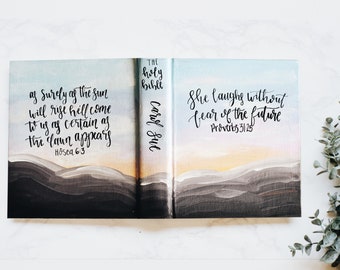 as surely as the sun
will rise he'll come
to us as certain as
the dawn appears
Hosea 6:3
the
holy
bible
Carly Sue
She laughs without
fear of the future
Proverbs 31:25